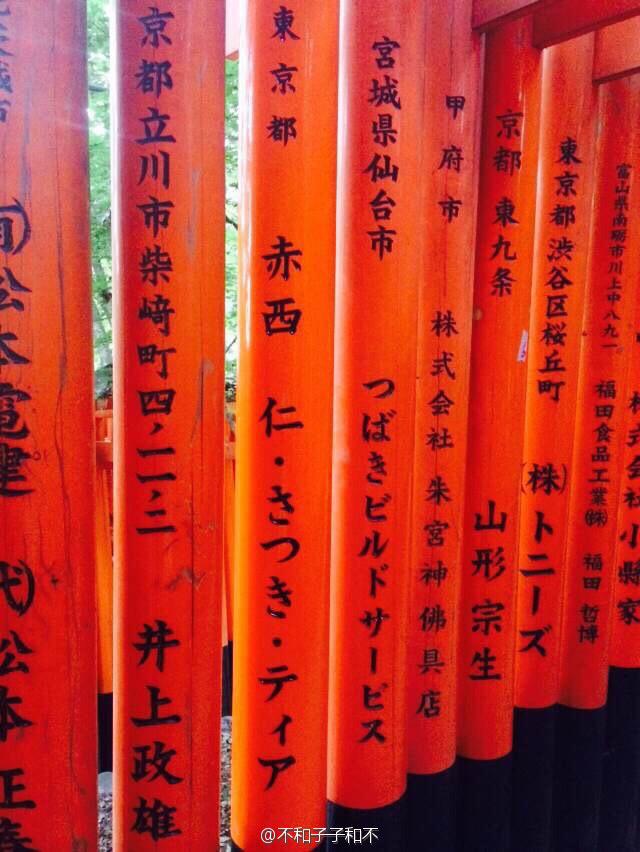 ㈲松本電建
代)松本 正春
京都立川市柴崎町四ノ一一ノ二
井上政雄
東京都
赤西 仁・さつき・ティア
宮城県仙台市
つばきビルドサービス
甲府市
株式会社朱宮神佛具店
京都 東九条
山形宗生
東京都渋谷区桜丘町
(株)トニーズ
富山県南砺市川上中八九一
福田食品工業㈱ 福田 哲博
株式会社小縣家
@不和子子和不